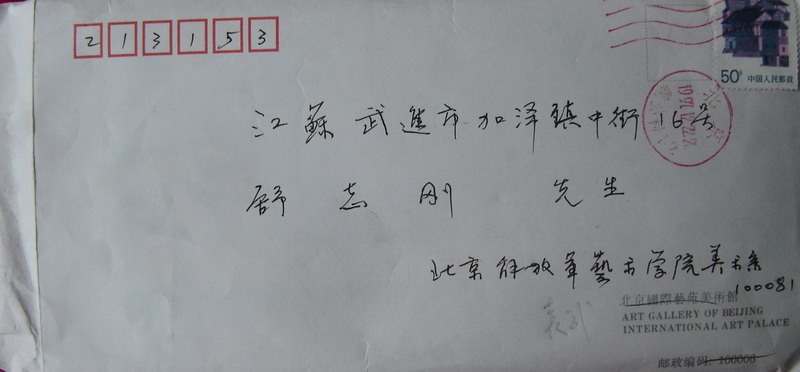 213153
50分 中国人民邮政
江蘇 武進市加泽镇中街16号
舒志刚 先生
北京解放军藝术学院美术系
100081
北京國際藝苑美術館
ART GALLERY OF BEIJING
INTERNATIONAL ART PALACE
邮政编码: 100006